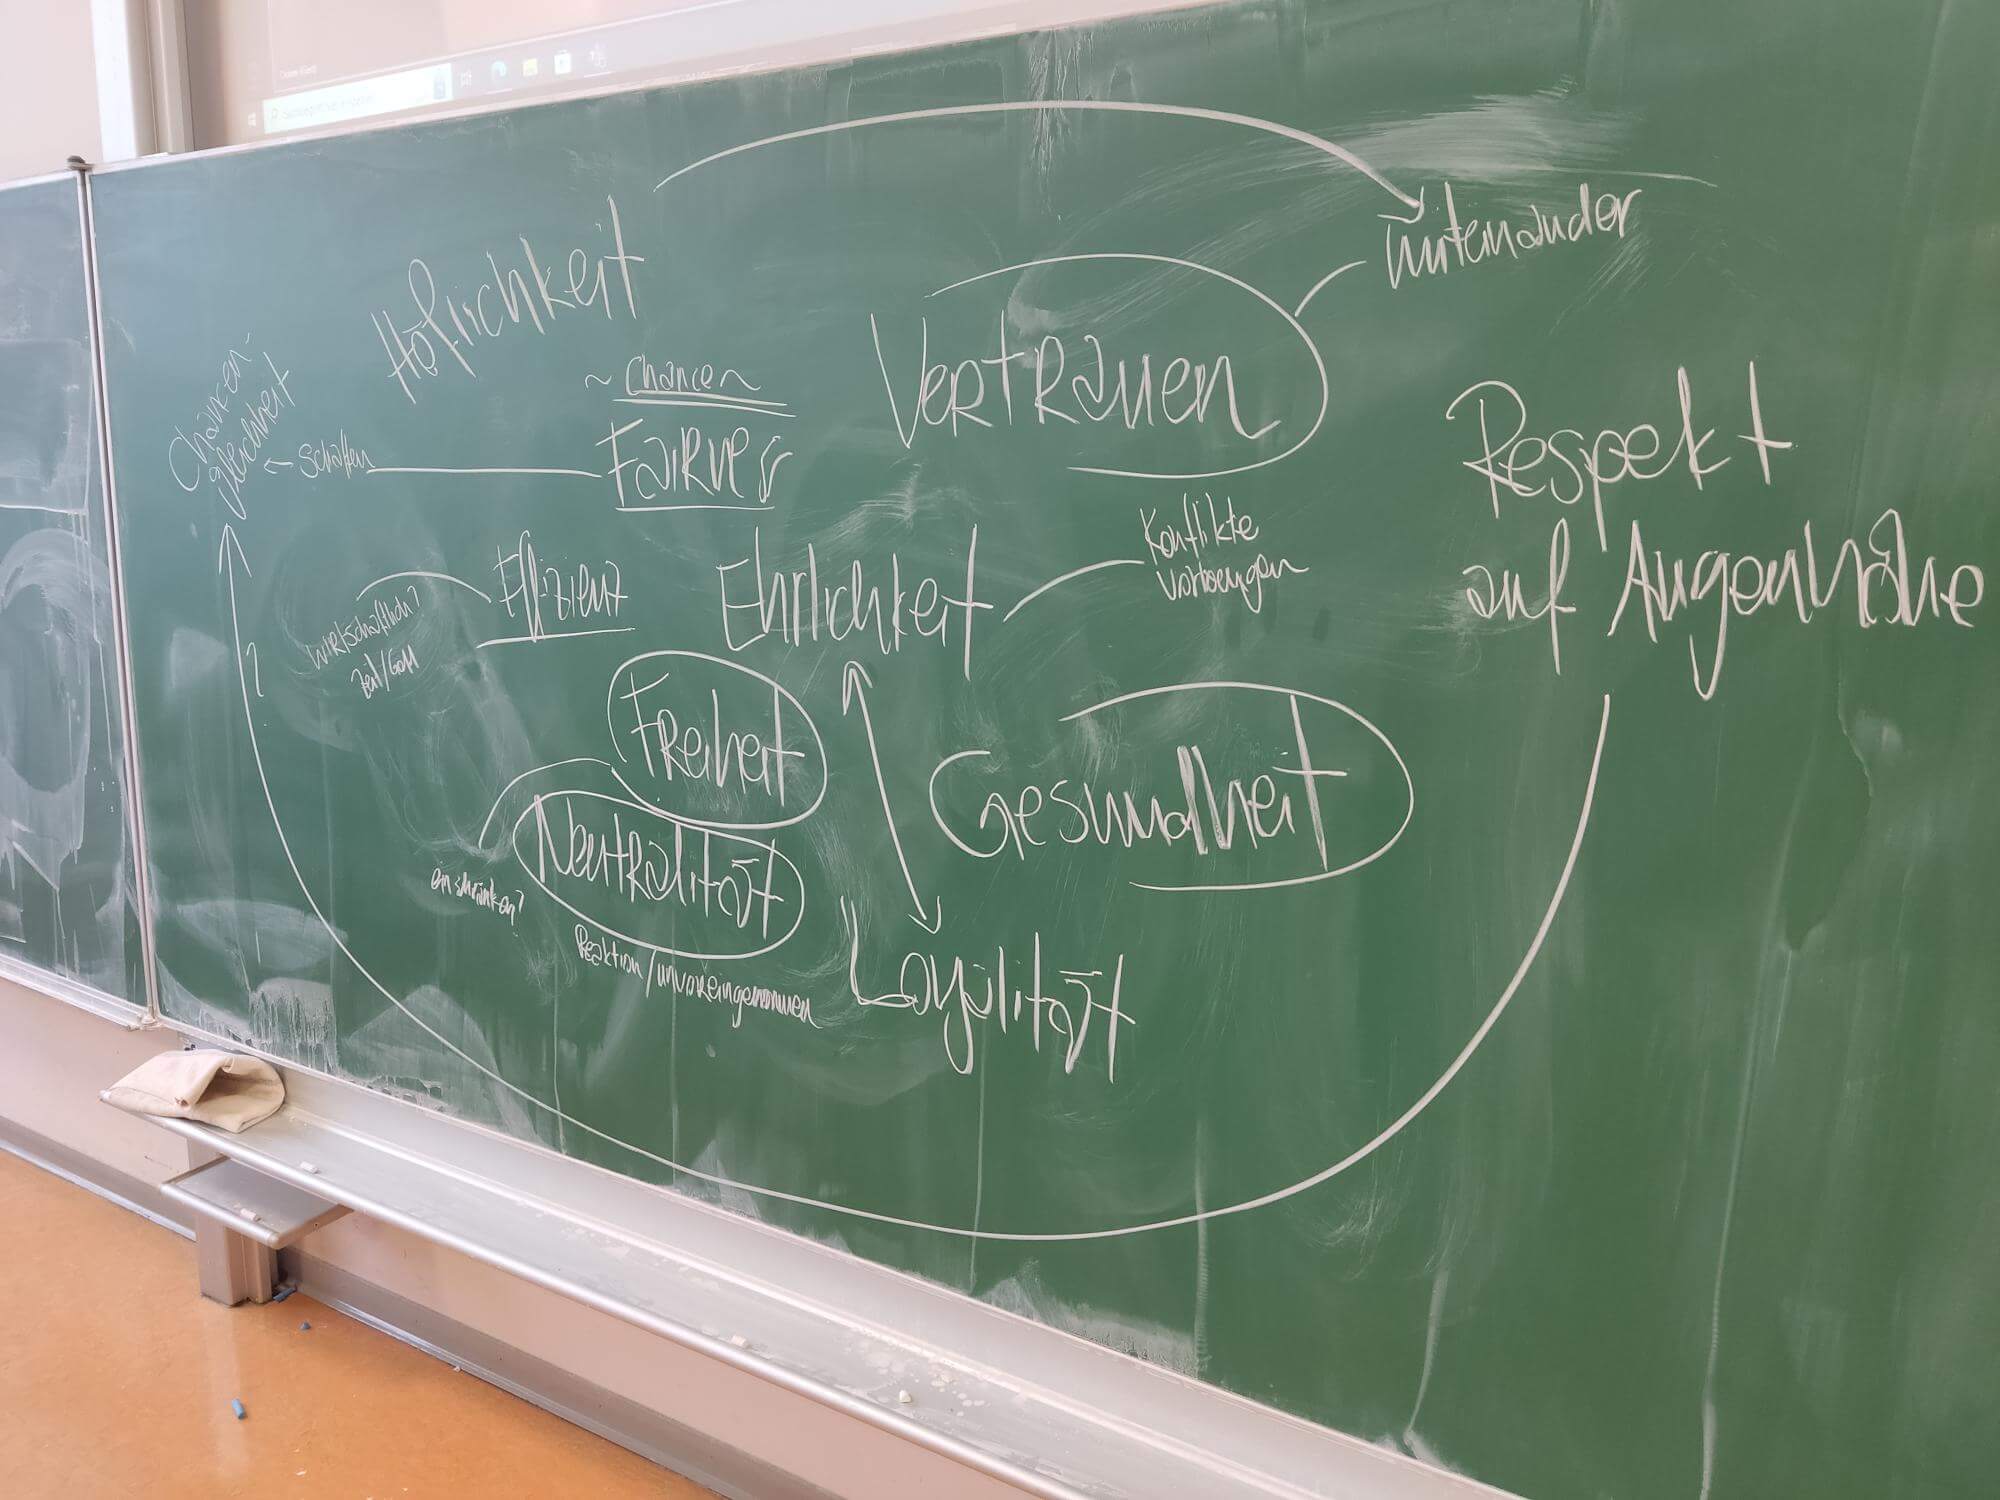 Höflichkeit
miteinander
Vertrauen
~ Chance ~
Fairness
Chancen-
gleichheit
← schaffen
Respekt
auf Augenhöhe
Effizienz
wirtschaftlich?
Zeit/Geld
Ehrlichkeit
Konflikte
vorbeugen
?
Freiheit
Neutralität
einschränken?
Reaktion/unvoreingenommen
Gesundheit
Loyalität